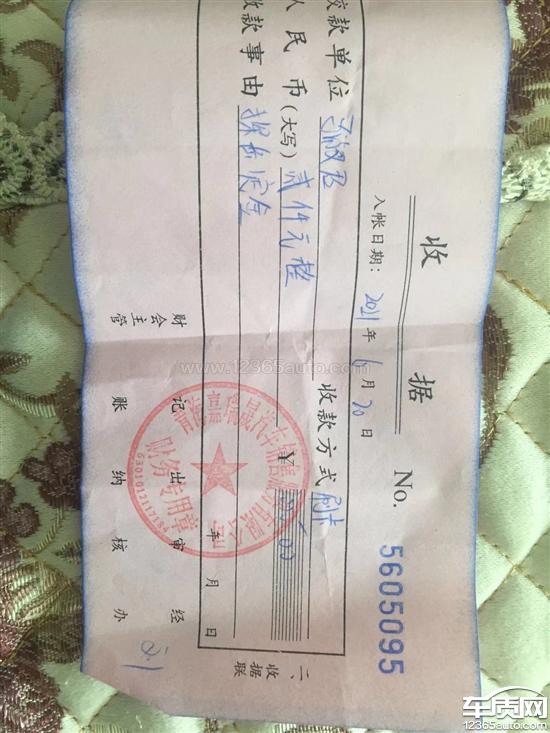 收 据
No. 5605095
入帐日期: 2021 年 6 月 20 日
交款单位 收款方式 刷卡
人民币(大写) 贰仟元整 ¥
收款事由 定金
年 月 日
二、收据联
财会主管 记账 出纳 审核 经办
财务专用章
6301012117284
www.12365auto.com
车质网
12365auto.com